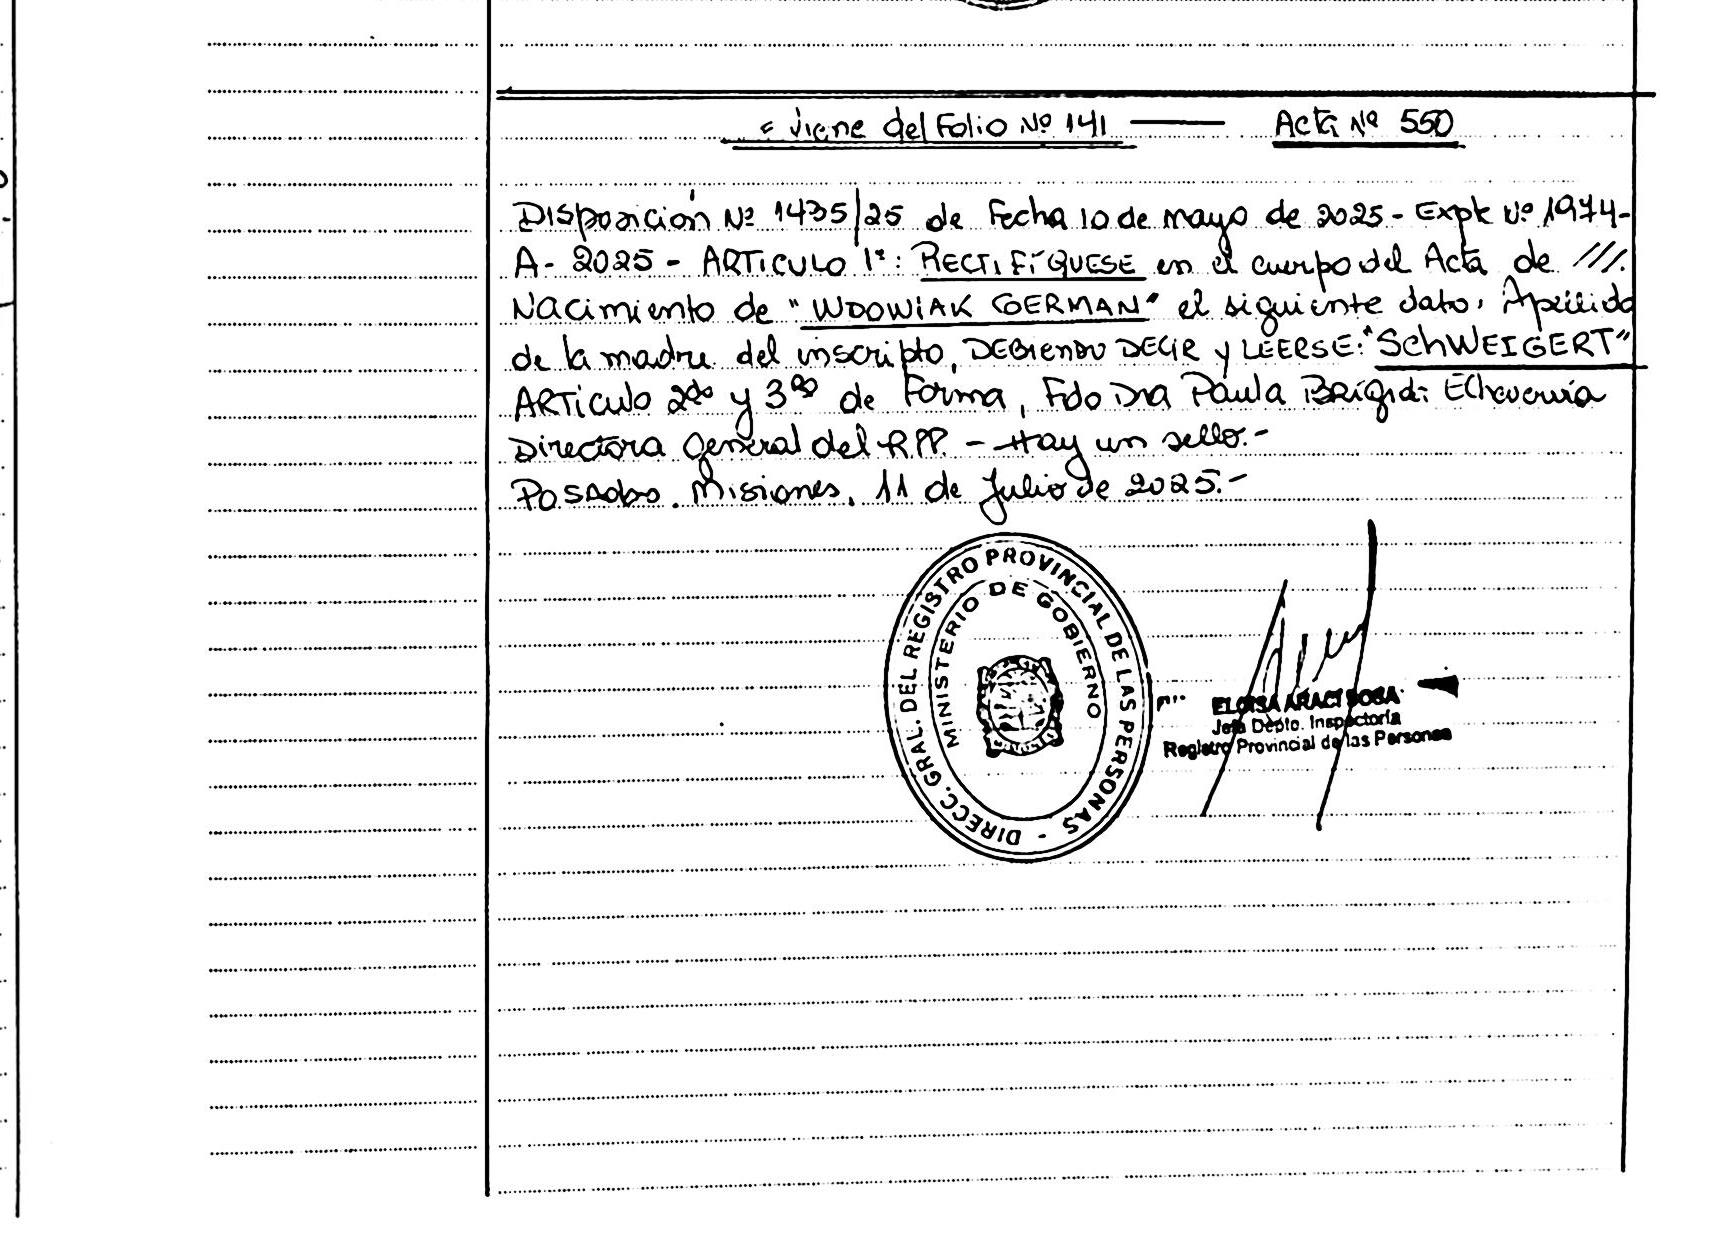 = Viene del Folio Nº 141 —— Acta Nº 550
Disposición Nº 1435/25 de Fecha 10 de mayo de 2025 - Expte Nº 1974-
A - 2025 - ARTICULO 1º: RECTIFÍQUESE en el cuerpo del Acta de ///.
Nacimiento de "WDOWIAK GERMAN" el siguiente dato, Apellido
de la madre del inscripto, DEBIENDO DECIR y LEERSE: "SCHWEIGERT"
ARTICULO 2do y 3ro de Forma, Fdo Dra Paula Brígida Echeverria
Directora General del R.P.P. - Hay un sello.-
Posadas, Misiones, 11 de Julio de 2025.-
DIRECC. GRAL. DEL REGISTRO PROVINCIAL DE LAS PERSONAS -
MINISTERIO DE GOBIERNO
ELOISA ARACI SOSA
Jefa Depto. Inspectoría
Registro Provincial de las Personas